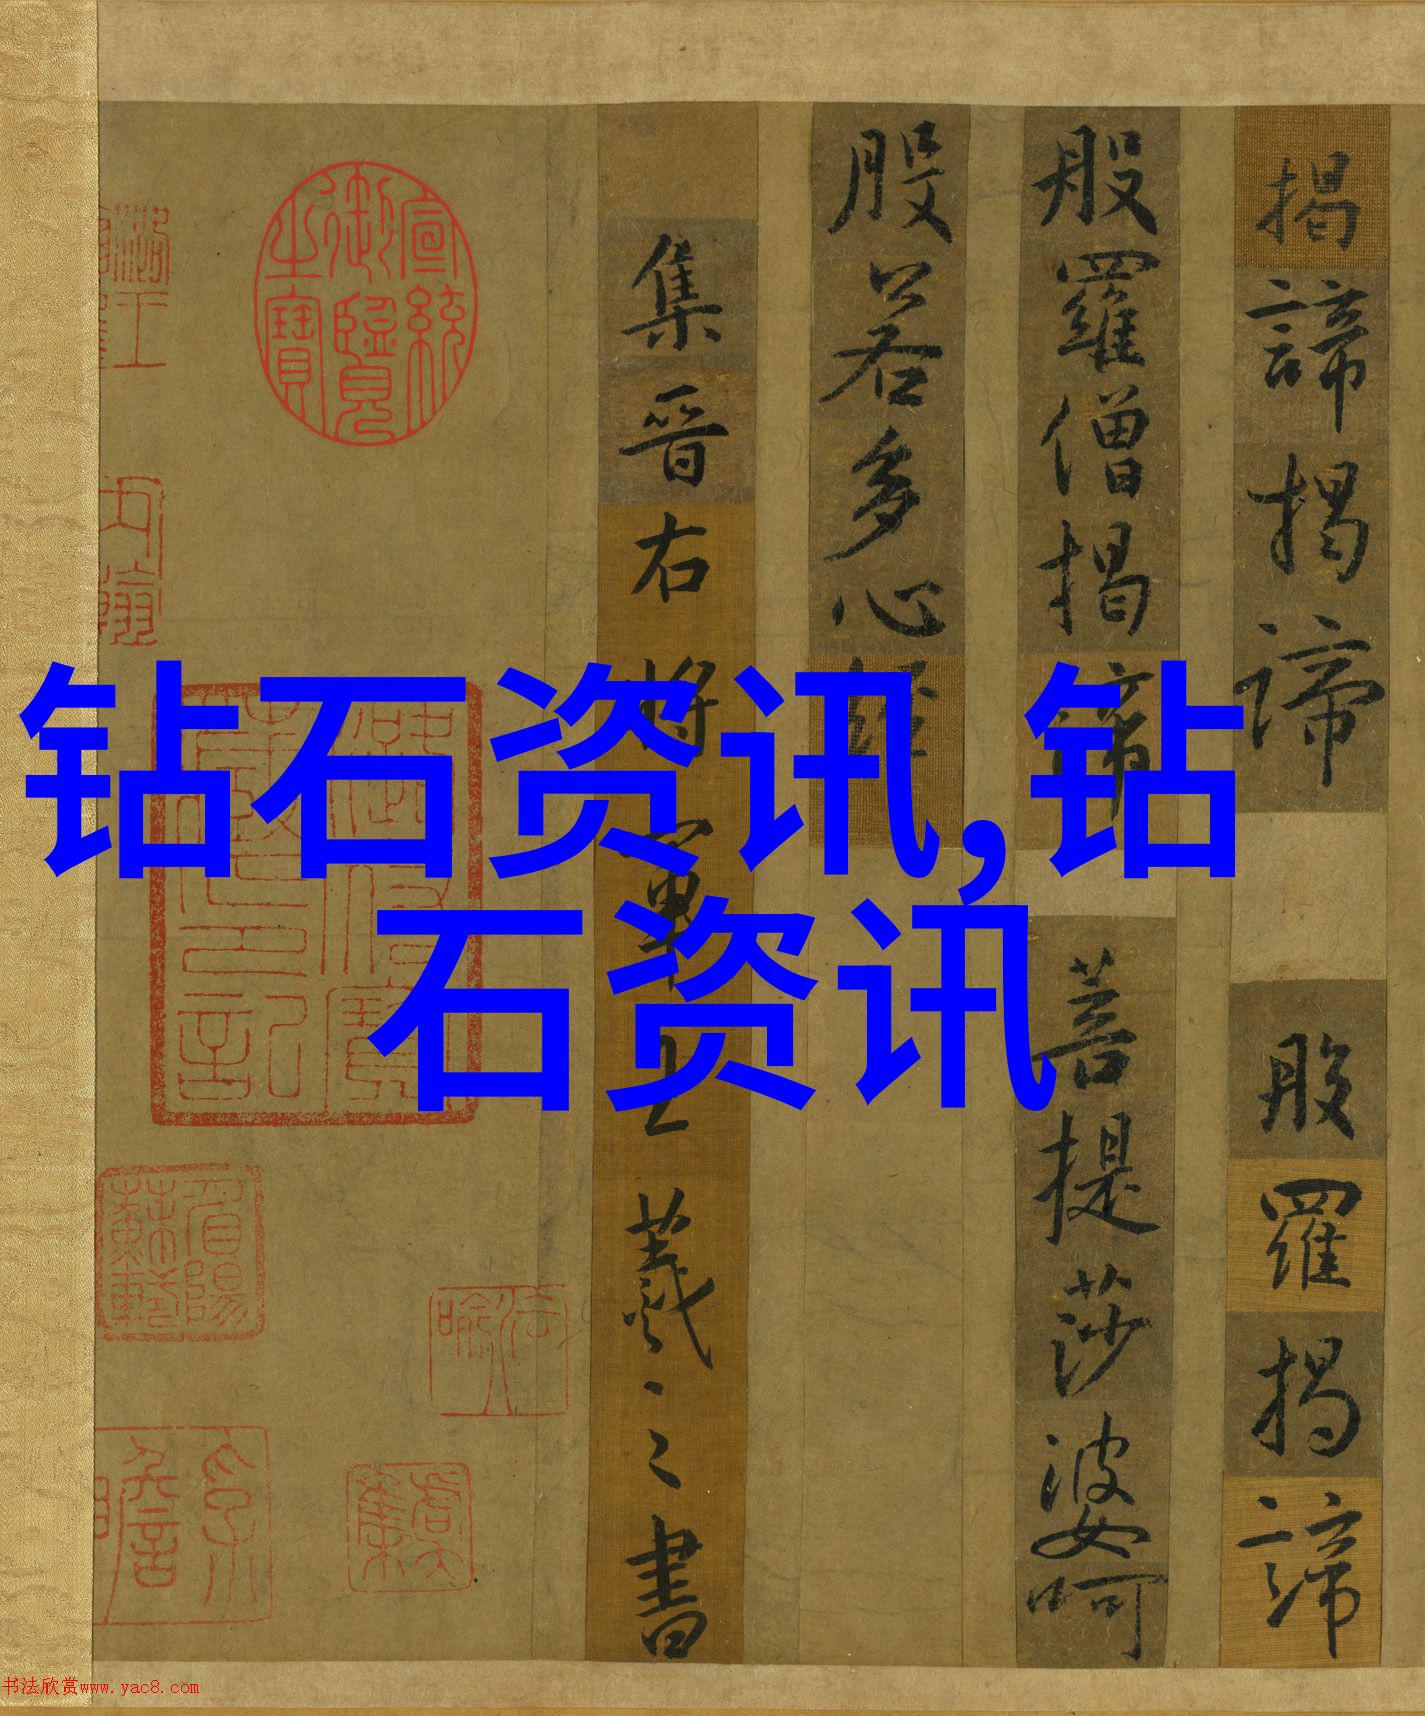 揭諦揭諦 般羅揭諦
般羅僧揭諦 菩提莎婆呵
般若多心經
集晉右將軍王羲之書
宣統御覽之寶
眉陽蘇軾
钻石资讯,钻
石资讯
书法欣赏www.yac8.com